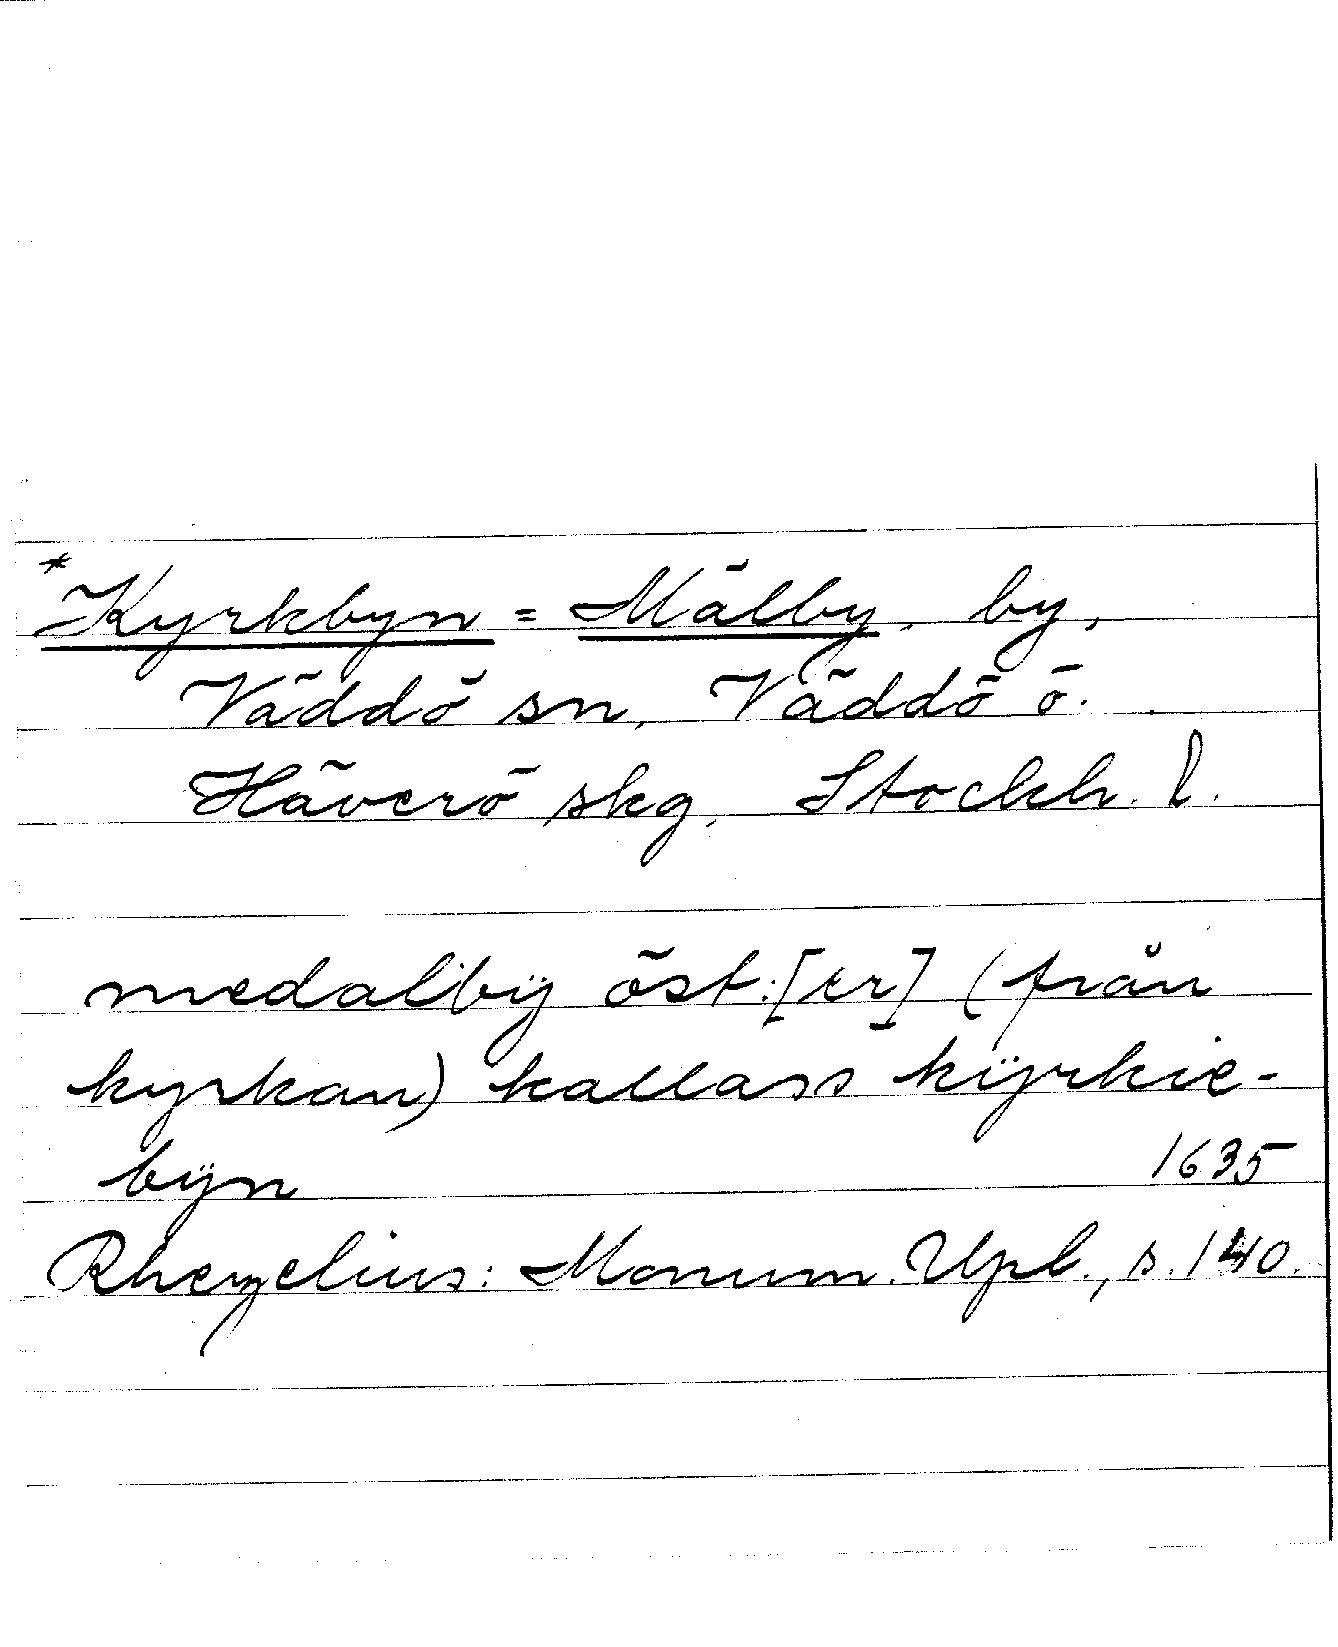 *Kyrkbyn = Mälby, by,
Väddö sn, Väddö ö.
Häverö skg, Stockh. l.
medalbÿ öst:[er] (från
kyrkan) kallass kÿrkie-
bÿn 1635
Rhezelius: Monum. Upl., s. 140.